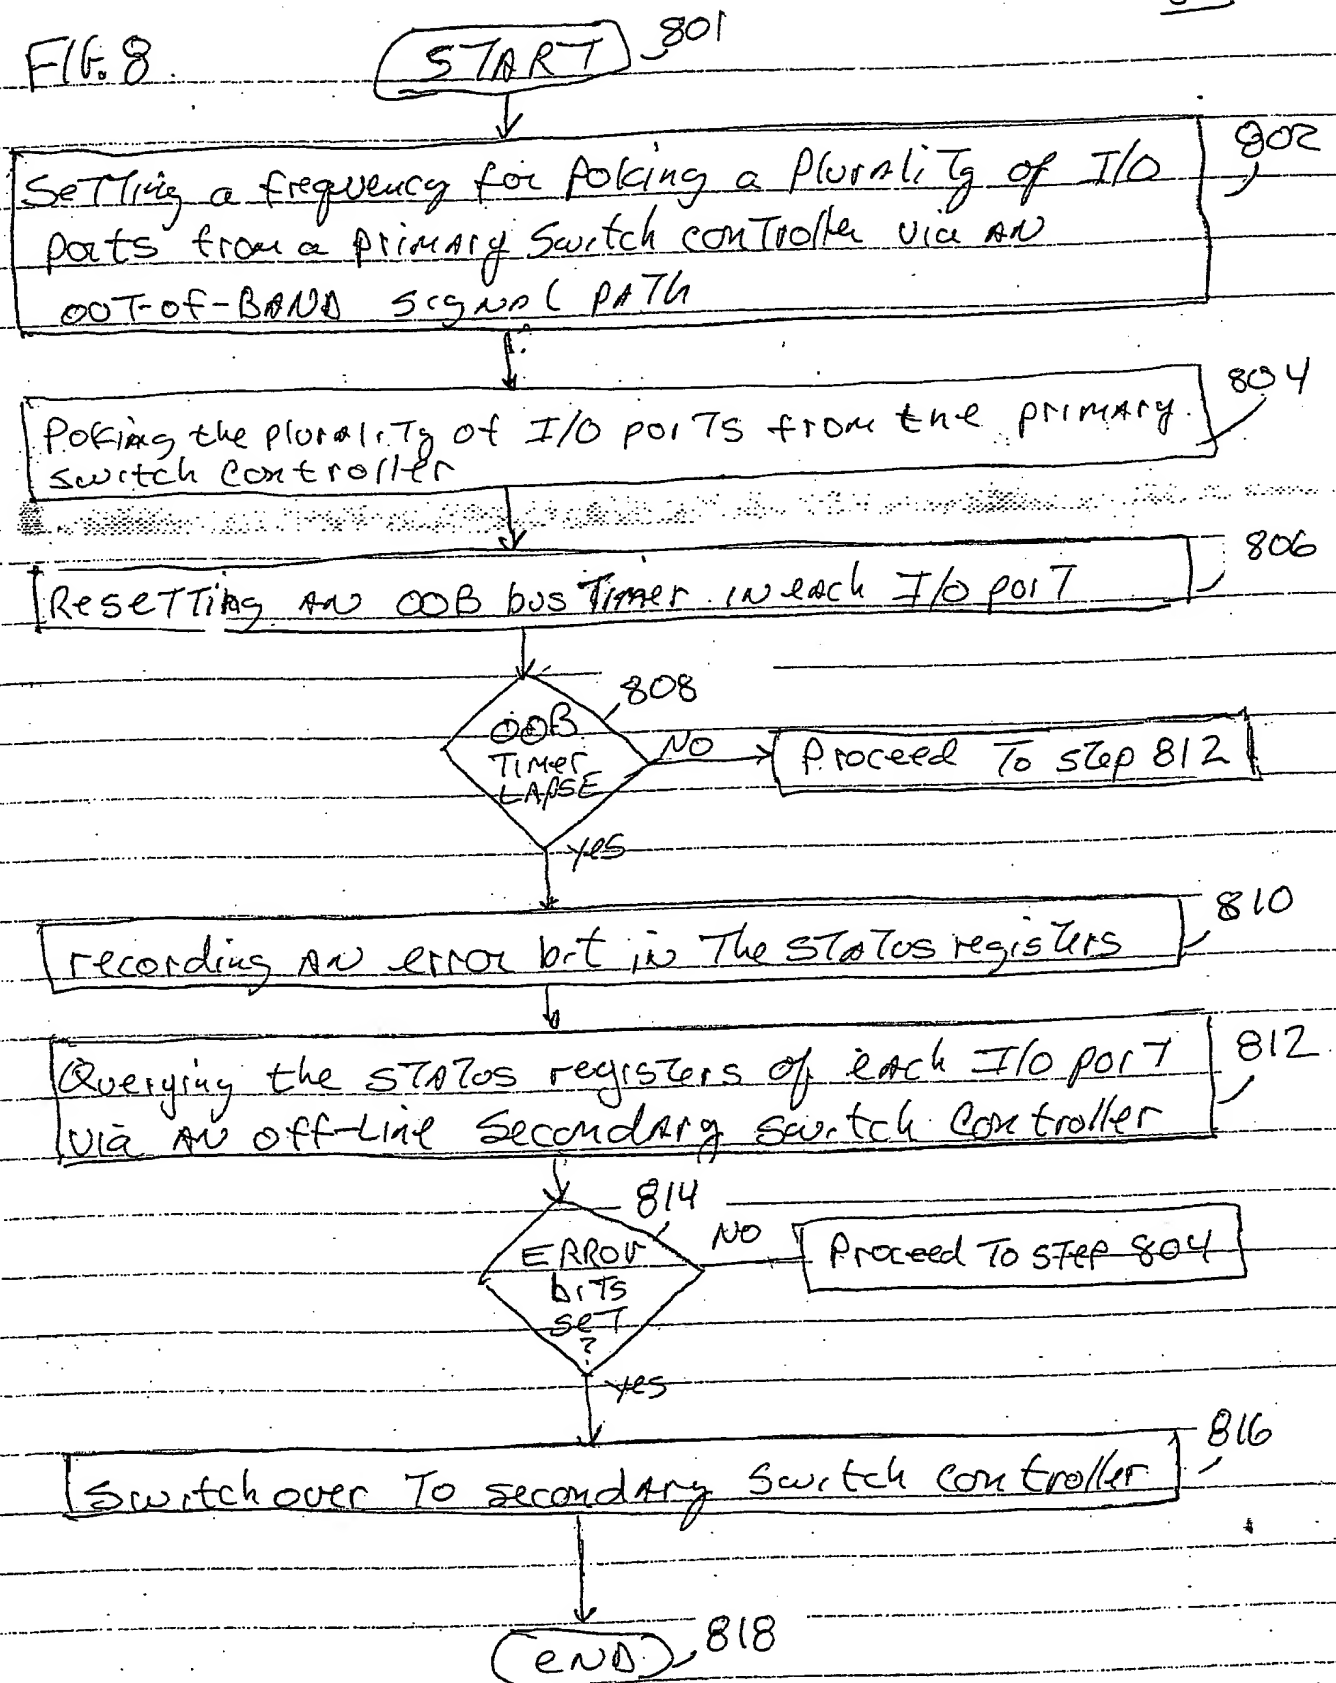 FIG. 8.
START 801
802
Setting a frequency for Poking a Plurality of I/O
ports from a primary switch controller via AN
OUT-of-BAND signal PATH
804
Poking the plurality of I/O ports from the primary
switch controller
806
Resetting AN OOB bus Timer in each I/O port
808
OOB
Timer
LAPSE
NO
Proceed To step 812
yes
810
recording AN error bit in The status registers
812
Querying the status registers of each I/O port
via AN off-Line Secondary switch Controller
814
ERROr
bits
set
?
NO
Proceed To step 804
yes
816
Switch over To secondary Switch controller
END 818